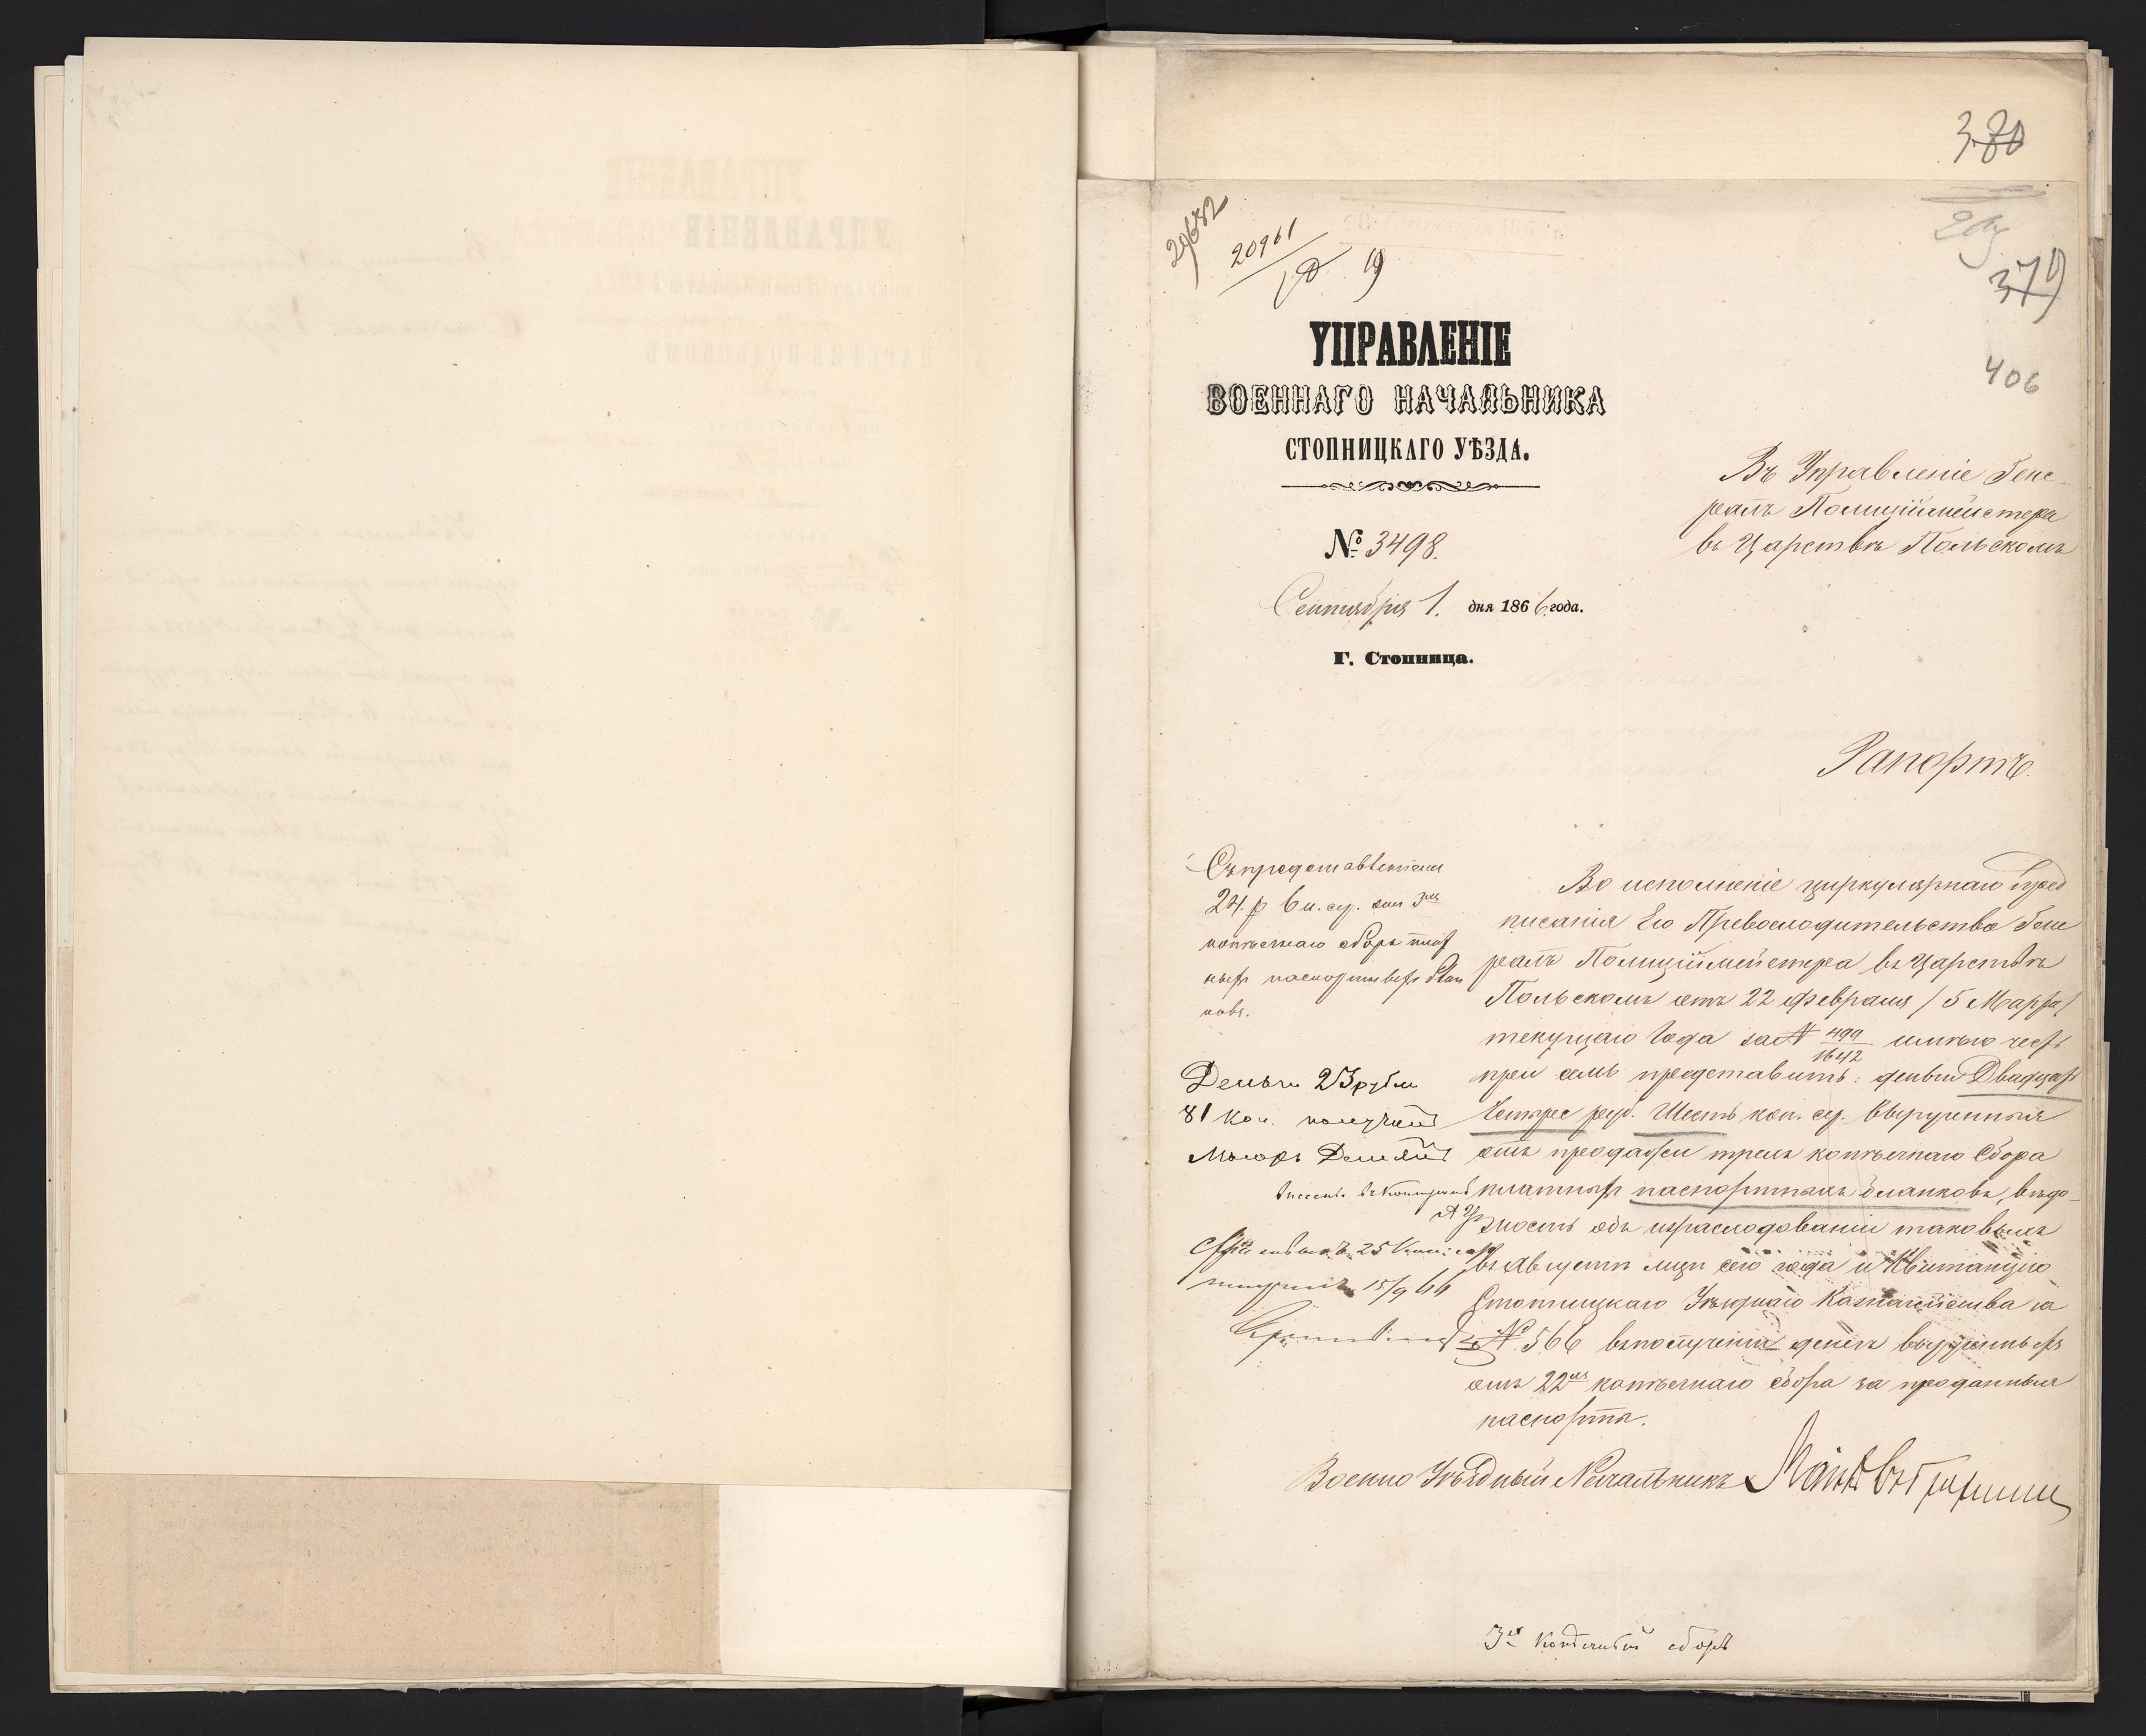 380
379
406
20682
20961
19
УПРАВЛЕНІЕ
ВОЕННАГО НАЧАЛЬНИКА
СТОПНИЦКАГО УѢЗДА.
№ 3498.
Сентября 1. дня 1866 года.
Г. Стопница.
Въ Управленіе Гене-
ралъ Полиціймейстера
въ Царствѣ Польскомъ
Рапортъ.
Съ представленіемъ
24. р 6 к. сер. 3хъ
копѣечнаго сбора плат
ныхъ паспортныхъ блан
ковъ.
Деньги 23 рубли
81 Коп. получилъ
Маіоръ
25 Коп:
15/9 66
Во исполненіе циркулярнаго пред
писанія Его Превосходительства Гене
ралъ Полиціймейстера въ Царствѣ
Польскомъ отъ 22 февраля / 5 Марта/
текущаго года за № 499/1642 имѣю честь
при семъ представить: деньги Двадцать
Четыре руб. Шесть коп. сер. вырученныя
отъ продажи трехъ копѣечнаго сбора
платныхъ паспортныхъ бланковъ, вѣдо-
мость объ израсходованіи таковыхъ
въ Августѣ мцѣ сего года и Квитанцію
Стопницкаго Уѣзднаго Казначейства за
№ 566 въ полученіи денегъ вырученныхъ
отъ 22хъ копѣечнаго сбора за проданныя
паспорты.
Военно Уѣздный Начальникъ Маіоръ
3х Копѣечный сборъ